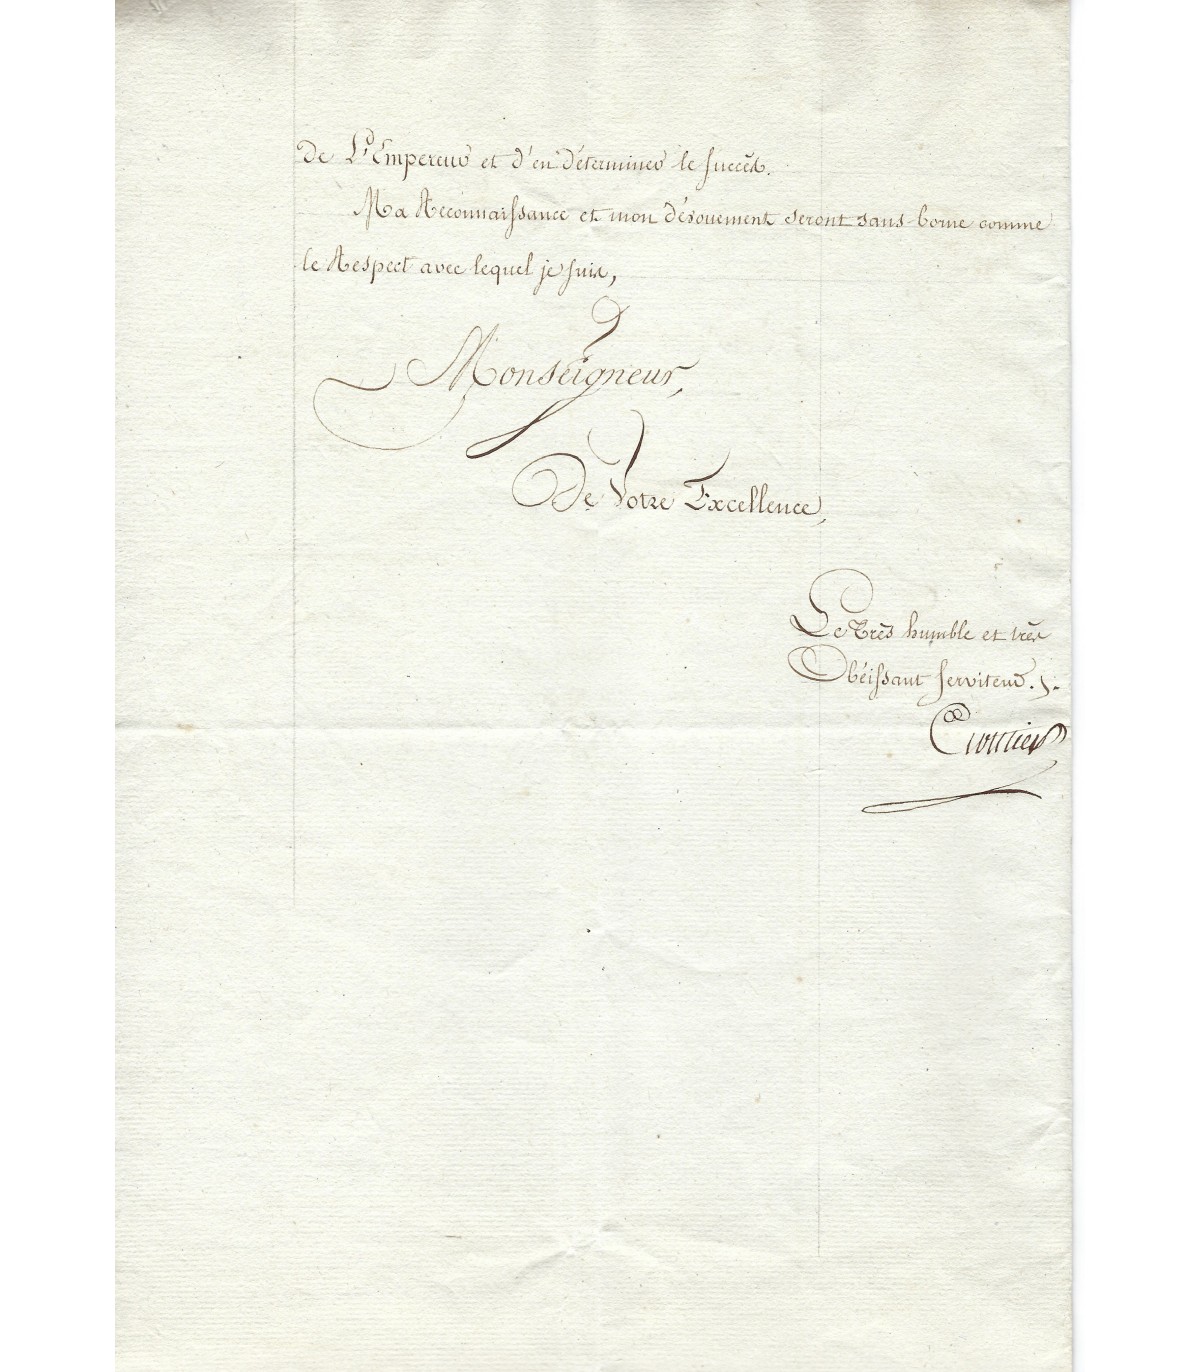 de L'Empereur et d'en déterminer le succès.
Ma Reconnaissance et mon dévouement seront sans borne comme
le Respect avec lequel je suis,
Monseigneur,
De Votre Excellence,
Le très humble et très
Obéissant serviteur.